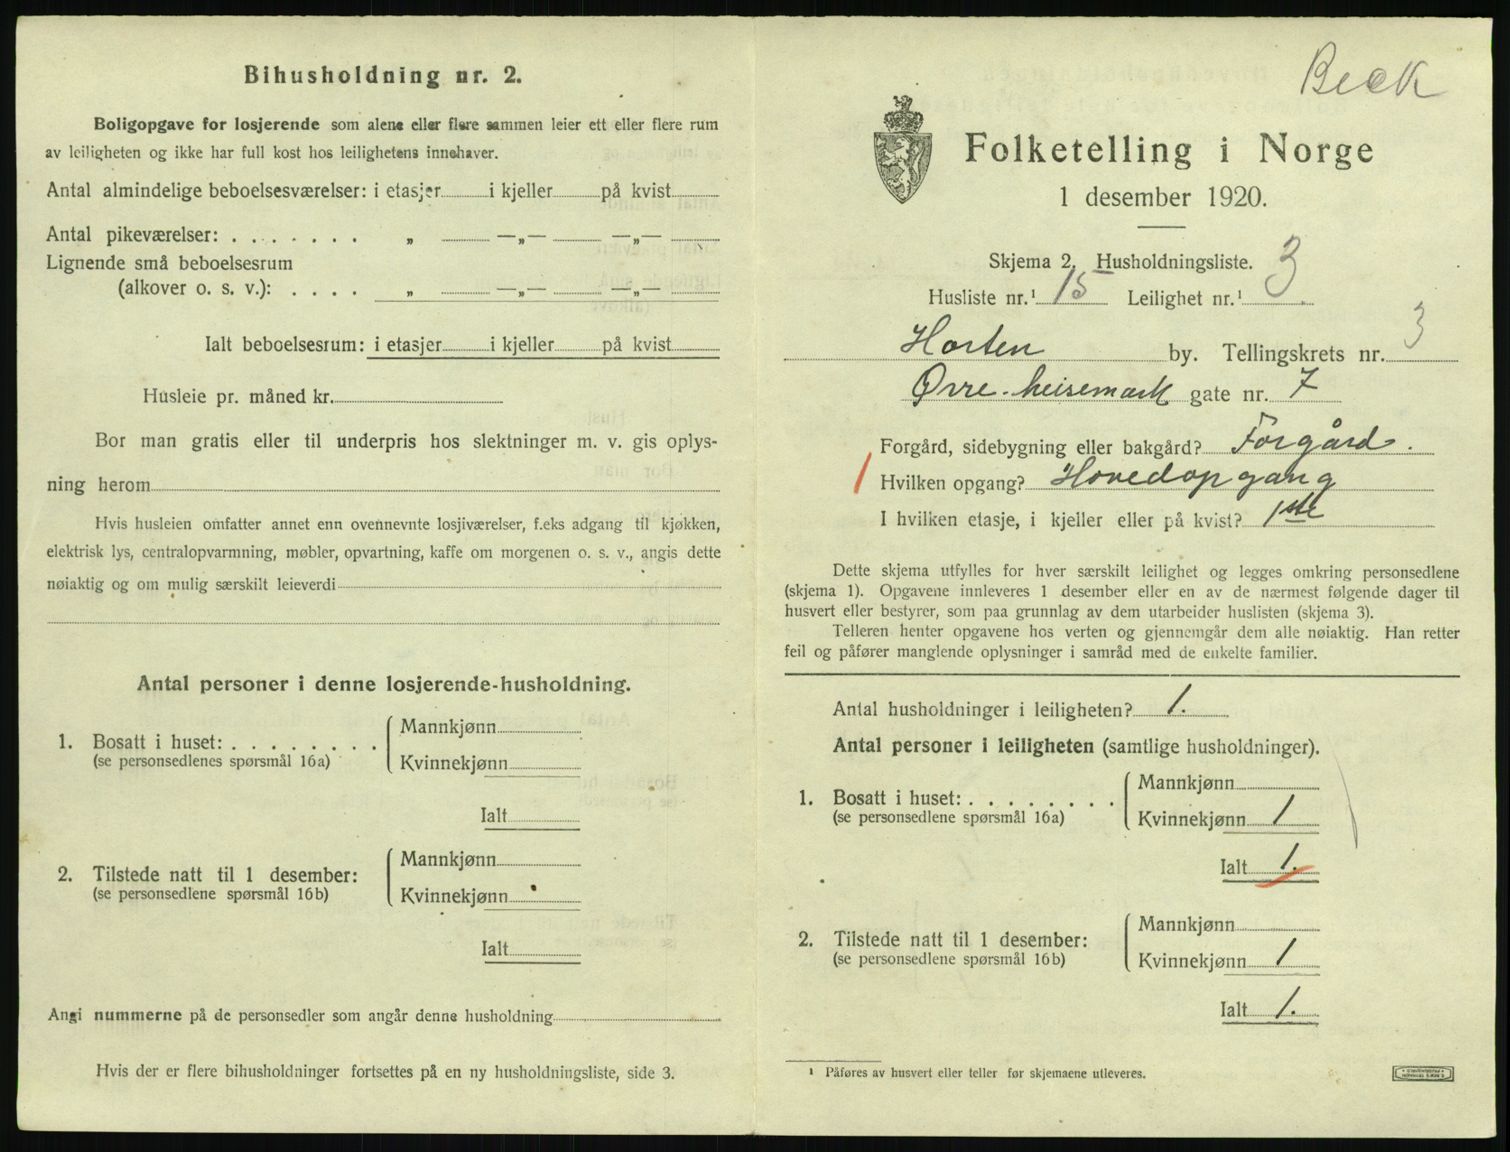 Bihusholdning nr. 2.
Boligopgave for losjerende som alene eller flere sammen leier ett eller flere rum
av leiligheten og ikke har full kost hos leilighetens innehaver.
Antal almindelige beboelsesværelser: i etasjer i kjeller på kvist
Antal pikeværelser: . . . . . . . „ —„— —„—
Lignende små beboelsesrum
(alkover o. s. v.): . . . . „ —„— —„—
Ialt beboelsesrum: i etasjer i kjeller på kvist
Husleie pr. måned kr.
Bor man gratis eller til underpris hos slektninger m. v. gis oplys-
ning herom
Hvis husleien omfatter annet enn ovennevnte losjiværelser, f.eks adgang til kjøkken,
elektrisk lys, centralopvarmning, møbler, opvartning, kaffe om morgenen o. s. v., angis dette
nøiaktig og om mulig særskilt leieverdi
Antal personer i denne losjerende-husholdning.
1. Bosatt i huset: . . . . . . . .
(se personsedlenes spørsmål 16a)
Mannkjønn
Kvinnekjønn
Ialt
2. Tilstede natt til 1 desember:
(se personsedlene spørsmål 16b)
Mannkjønn
Kvinnekjønn
Ialt
Angi nummerne på de personsedler som angår denne husholdning
Hvis der er flere bihusholdninger fortsettes på en ny husholdningsliste, side 3.
Beck
Folketelling i Norge
1 desember 1920.
Skjema 2. Husholdningsliste.
Husliste nr.¹ 15 Leilighet nr.¹ 3
Horten by. Tellingskrets nr. 3
Øvre Keisemark gate nr. 7
Forgård, sidebygning eller bakgård? Forgård.
1 Hvilken opgang? Hovedopgang
I hvilken etasje, i kjeller eller på kvist? 1ste
Dette skjema utfylles for hver særskilt leilighet og legges omkring personsedlene
(skjema 1). Opgavene innleveres 1 desember eller en av de nærmest følgende dager til
husvert eller bestyrer, som paa grunnlag av dem utarbeider huslisten (skjema 3).
Telleren henter opgavene hos verten og gjennemgår dem alle nøiaktig. Han retter
feil og påfører manglende oplysninger i samråd med de enkelte familier.
Antal husholdninger i leiligheten? 1.
Antal personer i leiligheten (samtlige husholdninger).
1. Bosatt i huset: . . . . . . . .
(se personsedlene spørsmål 16a)
Mannkjønn
Kvinnekjønn 1
Ialt 1.
2. Tilstede natt til 1 desember:
(se personsedlene spørsmål 16b)
Mannkjønn
Kvinnekjønn 1
Ialt 1.
¹ Påføres av husvert eller teller før skjemaene utleveres.